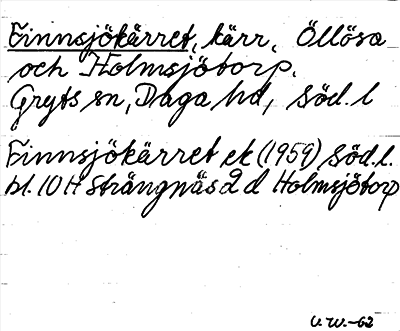 Finnsjökärret, kärr, Öllösa
och Holmsjötorp.
Gryts sn, Daga hd, Söd. l
Finnsjökärret ek (1959) Söd. l.
bl. 10 H Strängnäs 2 d Holmsjötorp
U. W.-62